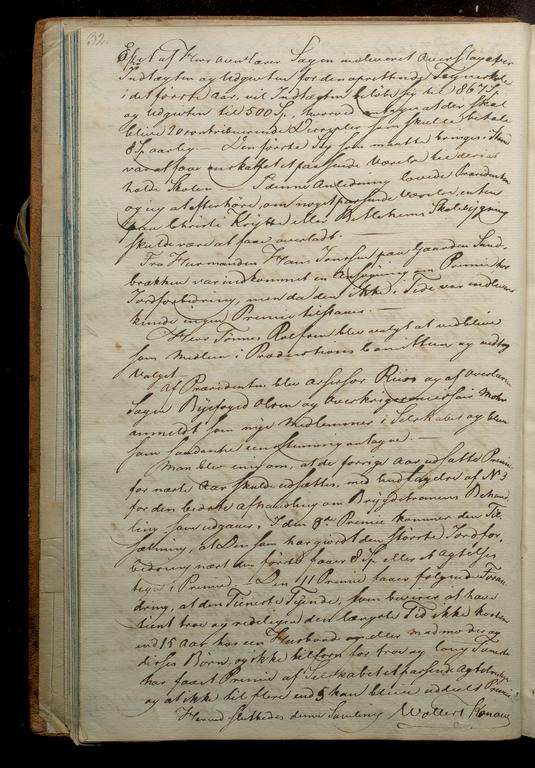 32.
Efter af Herr Overlærer Sagen meleveret Overslag over
Indtægten og Udgivten for den oprettende Tegneskole
i det første Aar, vil Indtægten beløbe sig til 867 Sp.
og Udgivten til 500 Sp., hvorved antages at der skal
blive 20 contribuerende Disciple som skulle betale
8 Sp. aarlig — Den første Ting som maatte bringes i Stand
var at faae anskaffet et passende Værelse til deri at
holde Skolen. I denne Anledning lovede Præsidenten
og jeg at efterhøre, om noget passende Værelse, enten
paa Christi Krybbe eller Bethlehems Skolebygning
skulde være at faae overladt. —
Fra Huusmanden Hans Jensen paa Gaarden Sand-
brækken var indkommet en Ansøgning om Premie for
Jordforbedring, men da den ikke i Tide var indleveret
kunde ingen Premie tilstaaes. —
Herr Tønnes Rolfsen blev valgt at vedblive
som Medlem i Productions Comitteen og modtog
Valget —
Af Præsidenten blev Assessor Rieis og af Overlærer
Sagen Byefoged Olsen og Overkrigscommissair Mohr
anmeldt som nye Medlemmer i Selskabet og bleve
som saadanne eenstemmig antagne. —
Man blev enig om, at de forrige Aar udsatte Premier
for næste Aar skulde udsættes, med Undtagelse af No 3
for den bedste Afhandling om Brystdramens Behand-
ling som udgaaer. I den 8de Premie kommer den Til-
sætning, at Den som har gjordt den største Jordfor-
bedring næst den første faaer 8 Sp. eller et Agtelses
tegn i Premie. I Den 11 Premie faaer følgende Foran-
dring, at den Tieneste Tyende, som beviser at have
tient troe og redeligen den længste Tid ikke kortere
end 15 Aar hos een Huusbond og eller Madmoder og
disses Børn, og ikke tilforn for troe og lang Tieneste
har faaet Premie af Selskabet et passende Agtelsestegn
og at ikke til flere end 5 kan blive uddeelt Premie
Hermed sluttedes denne Samling Wollert Konow